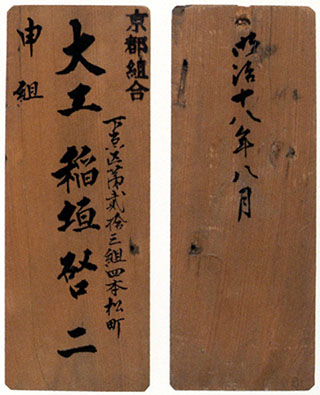 京都組合
下京区第弐拾三組四本松町
大工 稲垣啓二
申組
明治十八年八月